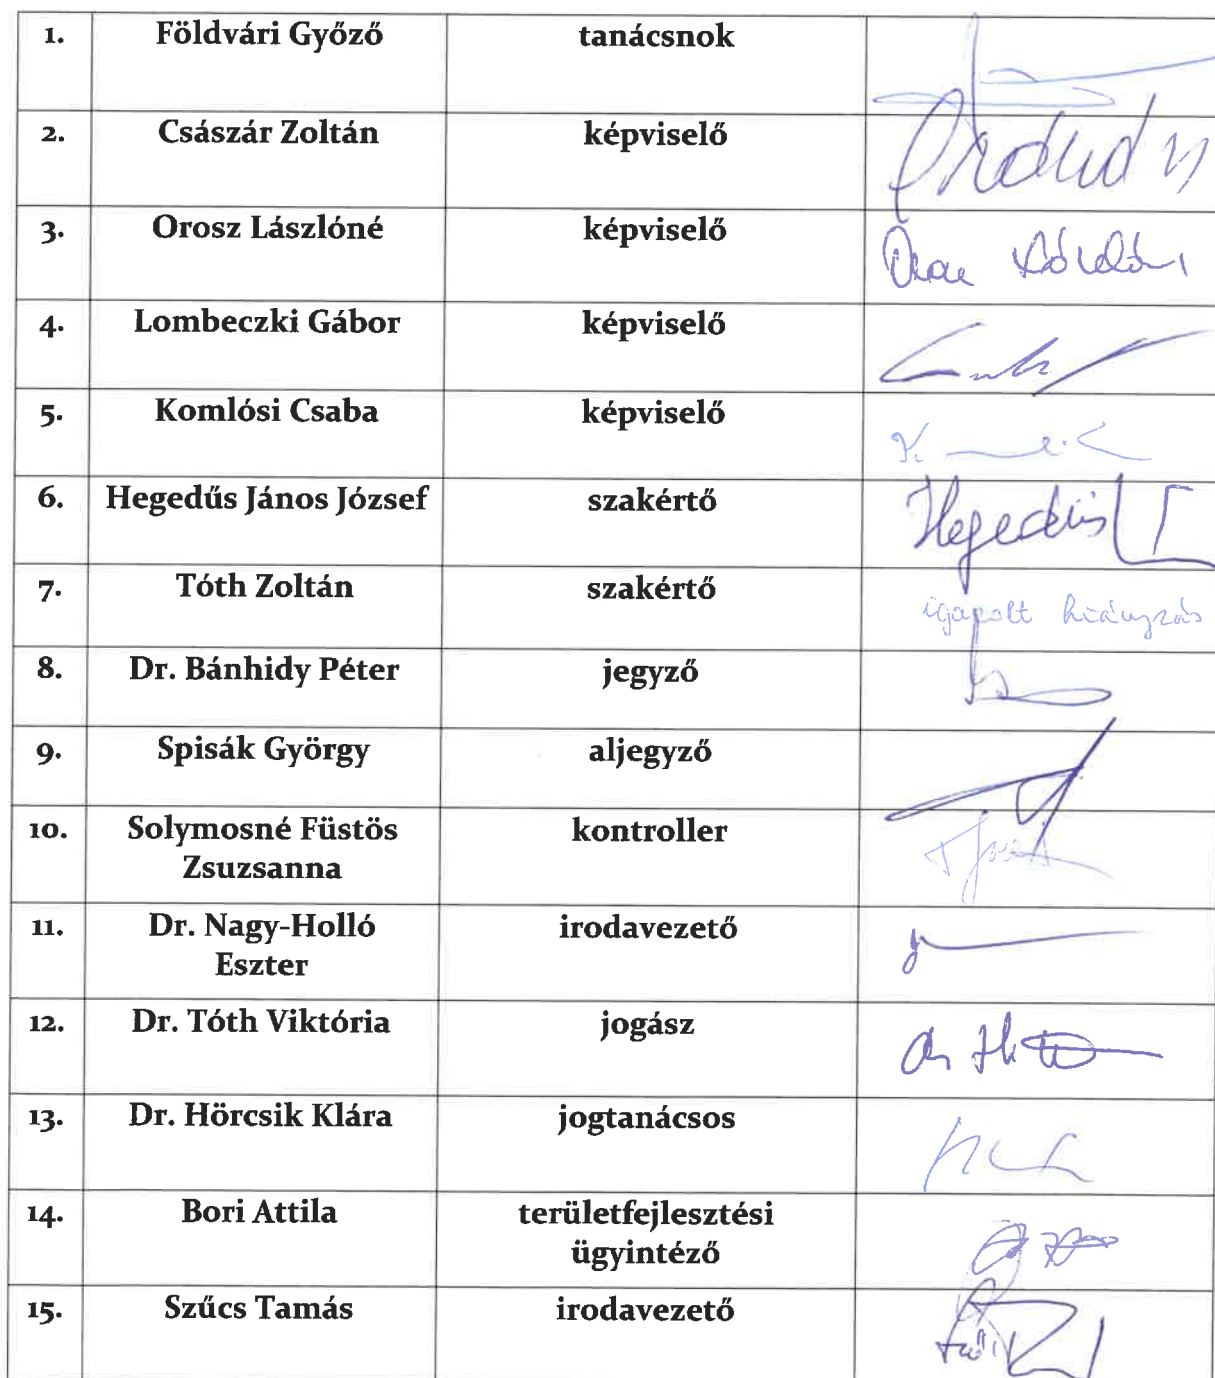 1. Földvári Győző tanácsnok
2. Császár Zoltán képviselő
3. Orosz Lászlóné képviselő
4. Lombeczki Gábor képviselő
5. Komlósi Csaba képviselő
6. Hegedűs János József szakértő Hegedűs
7. Tóth Zoltán szakértő igazolt hiányzás
8. Dr. Bánhidy Péter jegyző
9. Spisák György aljegyző
10. Solymosné Füstös kontroller
Zsuzsanna
11. Dr. Nagy-Holló irodavezető
Eszter
12. Dr. Tóth Viktória jogász
13. Dr. Hörcsik Klára jogtanácsos
14. Bori Attila területfejlesztési
ügyintéző
15. Szűcs Tamás irodavezető